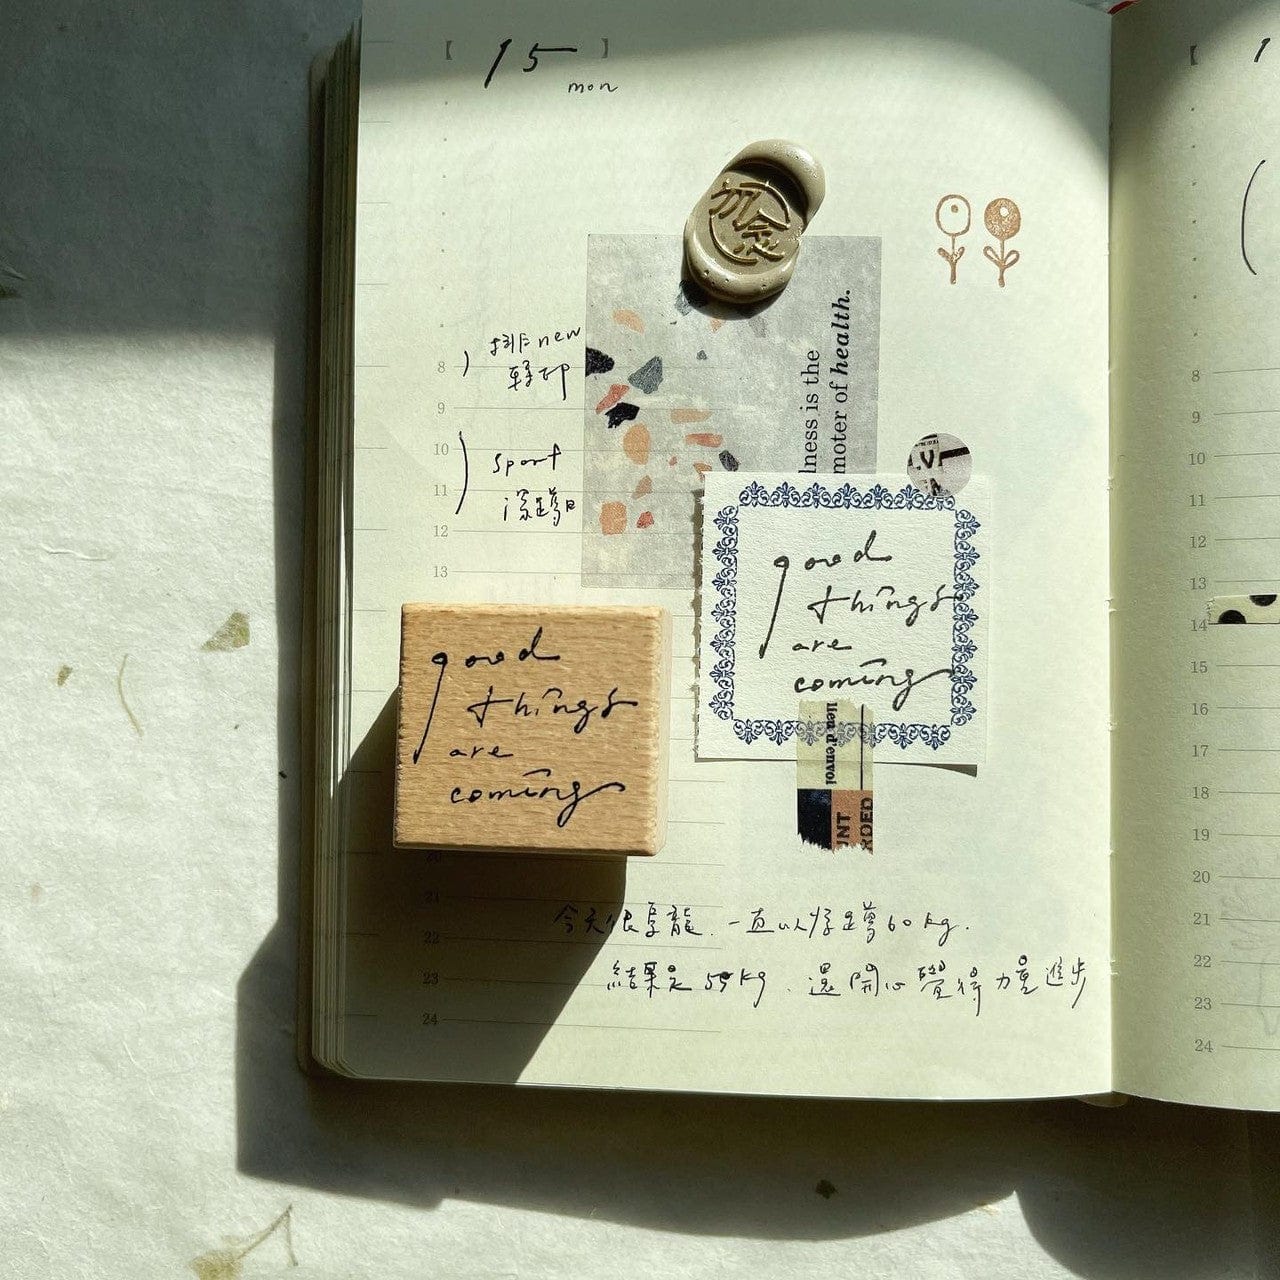 【 15 】
mon
lness is the
moter of health.
排new
章印
sport
深蹲日
good
things
are
coming
lieu d'envoi
UNT
RDED
good
things
are
coming
今天很烏龍．一直以為深蹲60kg．
結果是55kg．還開心覺得力量進步
8
9
10
11
12
13
20
21
22
23
24
8
9
10
11
12
13
14
15
16
17
18
19
20
21
22
23
24